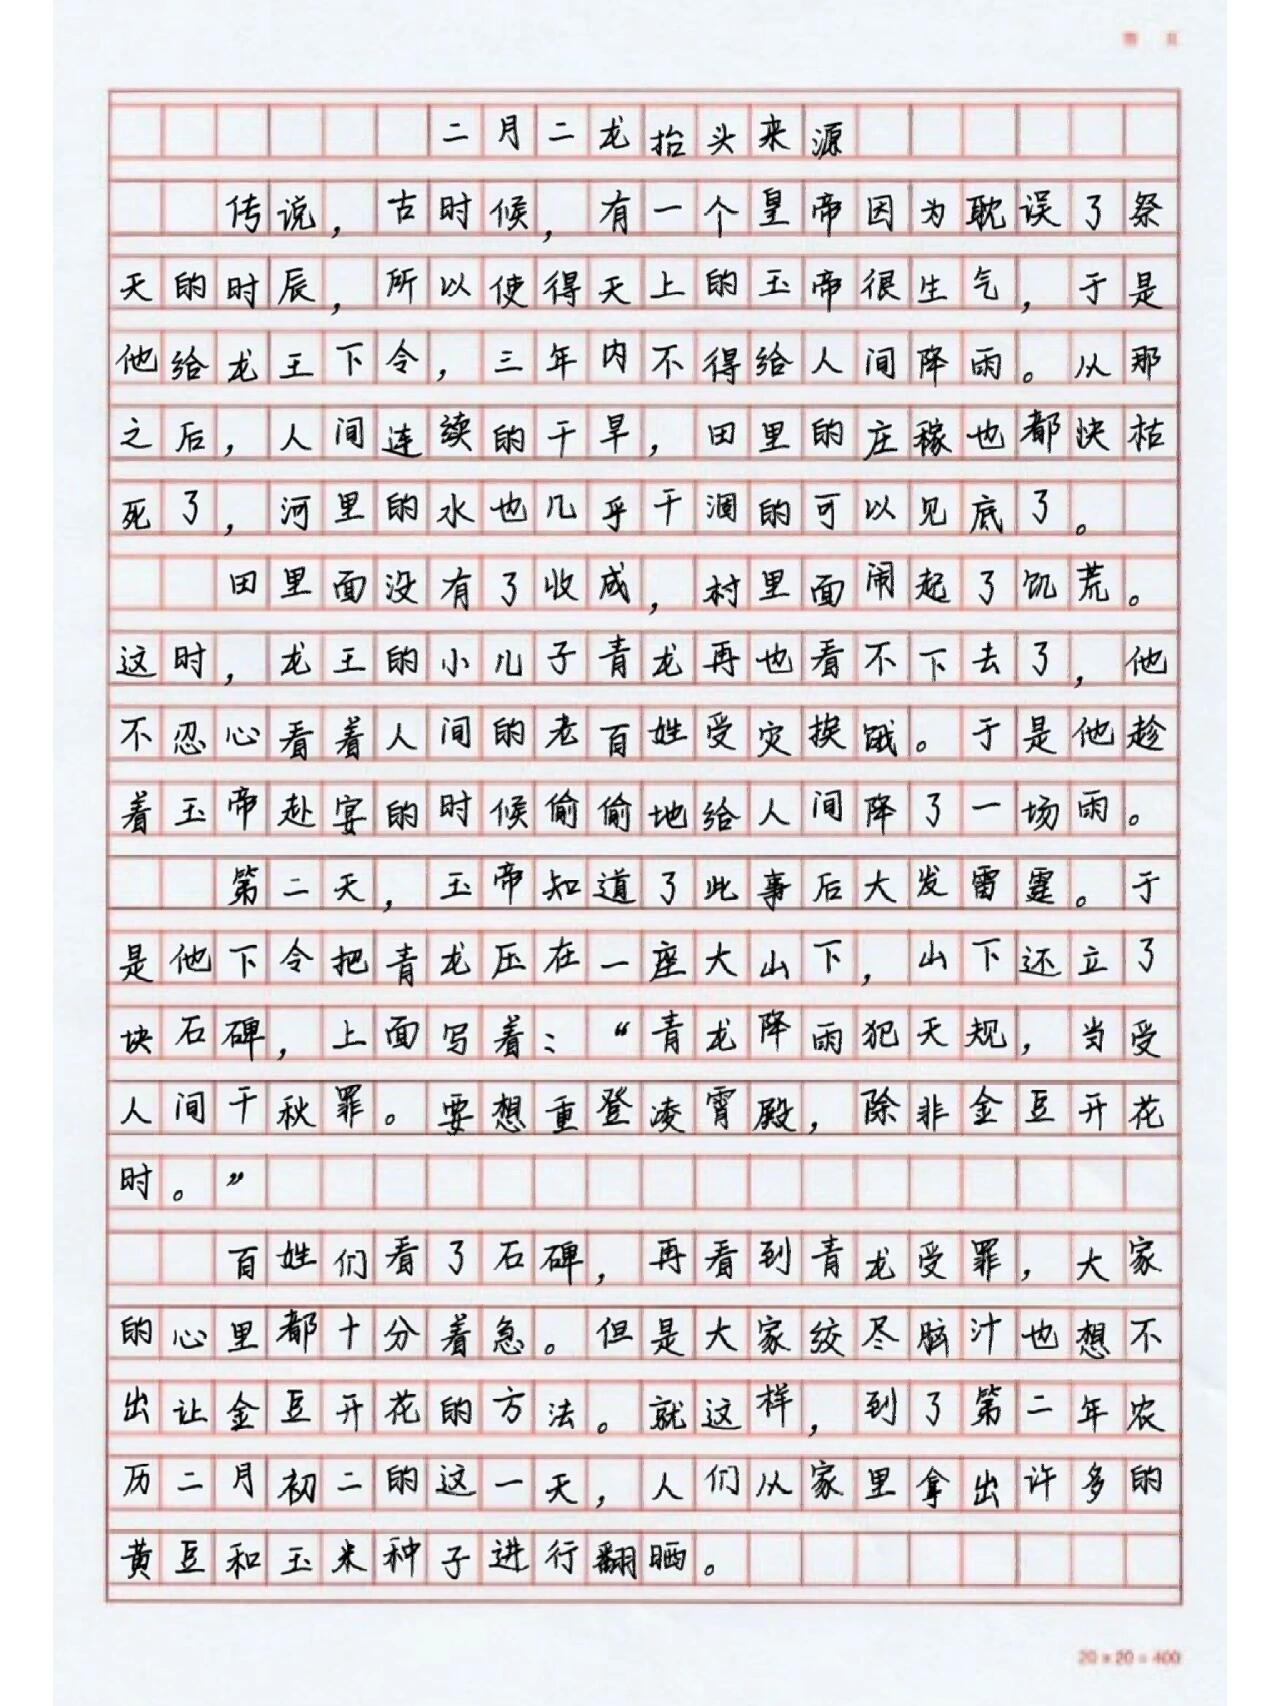 二月二龙抬头来源
传说，古时候，有一个皇帝因为耽误了祭
天的时辰，所以使得天上的玉帝很生气，于是
他给龙王下令，三年内不得给人间降雨。从那
之后，人间连续的干旱，田里的庄稼也都快枯
死了，河里的水也几乎干涸的可以见底了。
田里面没有了收成，村里面闹起了饥荒。
这时，龙王的小儿子青龙再也看不下去了，他
不忍心看着人间的老百姓受灾挨饿。于是他趁
着玉帝赴宴的时候偷偷地给人间降了一场雨。
第二天，玉帝知道了此事后大发雷霆。于
是他下令把青龙压在一座大山下，山下还立了
块石碑，上面写着：“青龙降雨犯天规，当受
人间千秋罪。要想重登凌霄殿，除非金豆开花
时。”
百姓们看了石碑，再看到青龙受罪，大家
的心里都十分着急。但是大家绞尽脑汁也想不
出让金豆开花的方法。就这样，到了第二年农
历二月初二的这一天，人们从家里拿出许多的
黄豆和玉米种子进行翻晒。
20×20=400